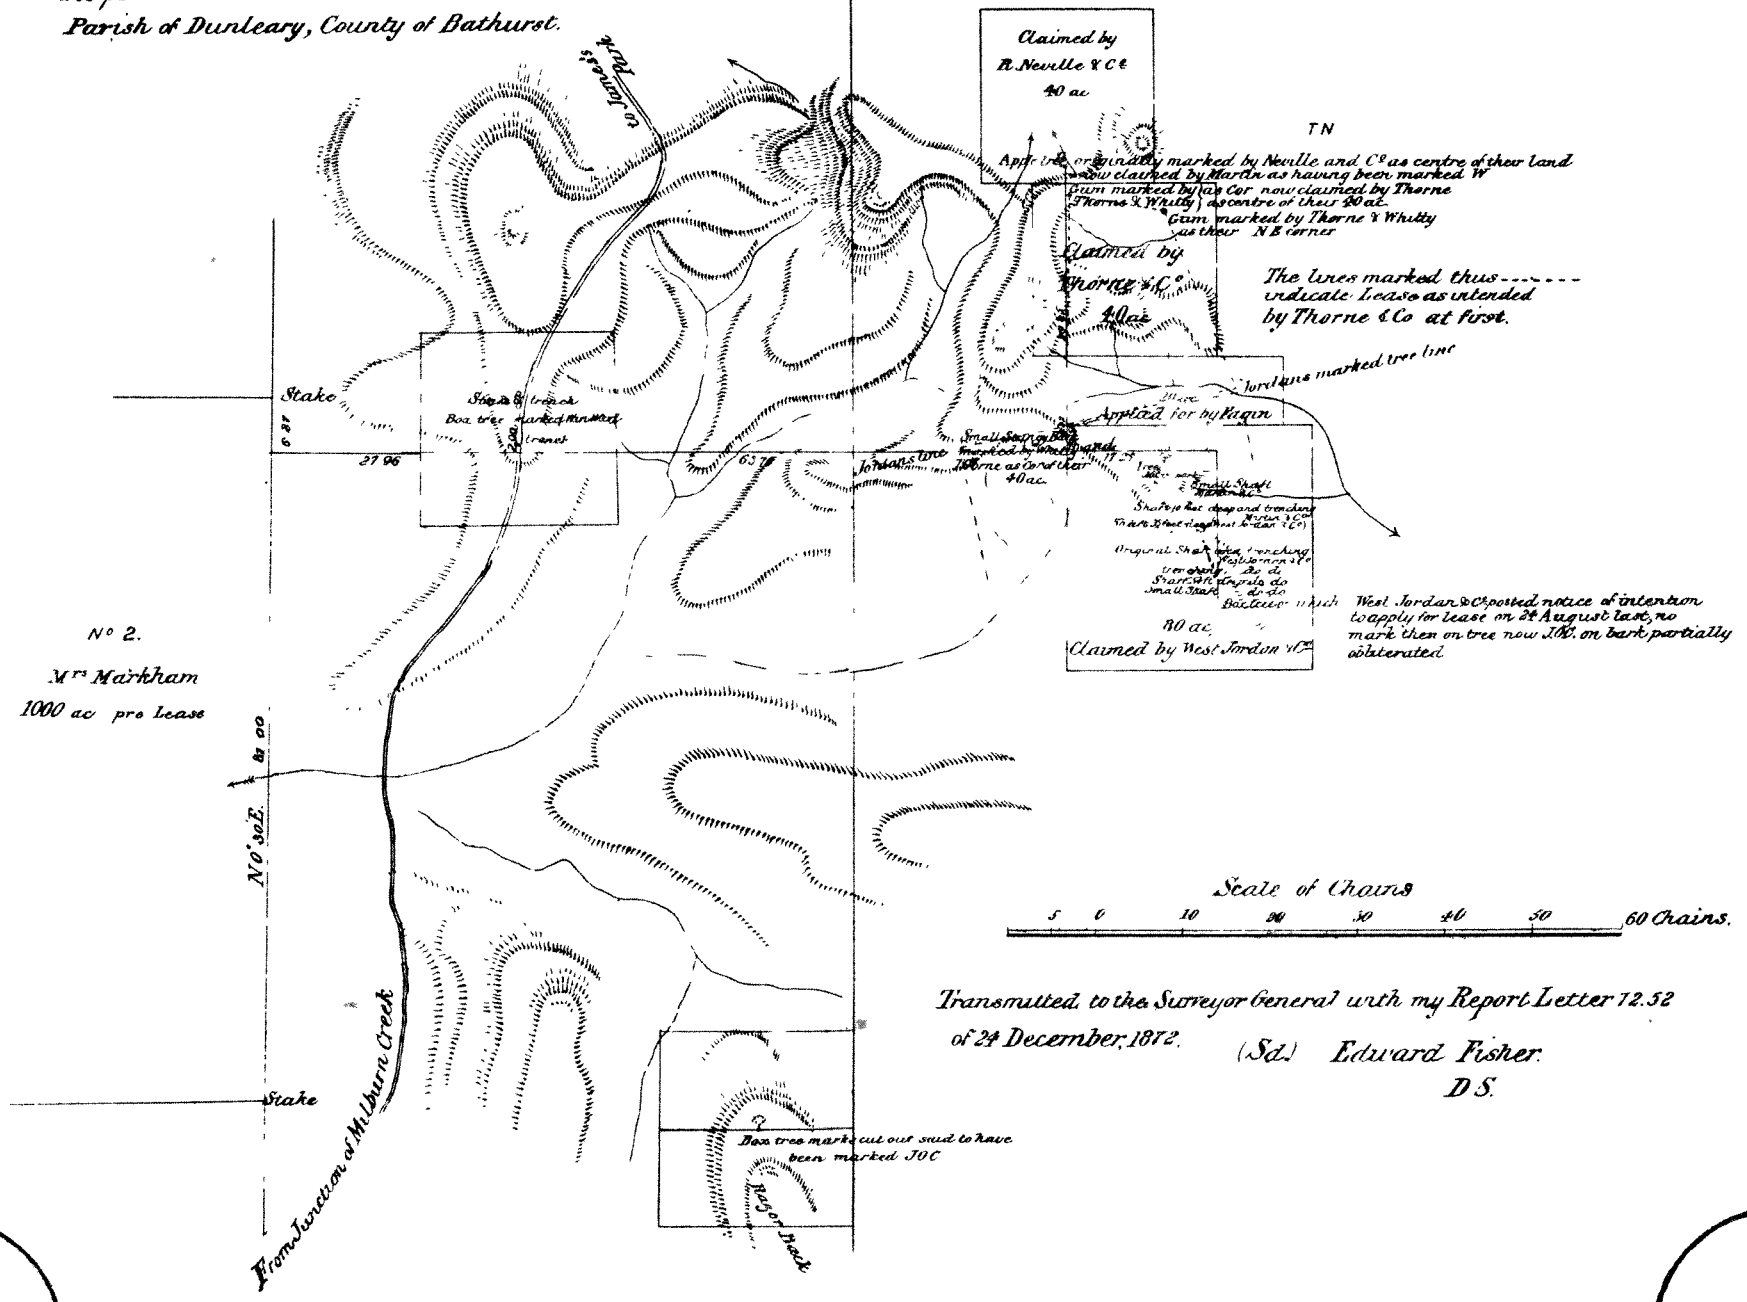 Parish of Dunleary, County of Bathurst.
to James's
Park
Claimed by
R. Neville & Co
40 ac
TN
originally marked by Neville and Co as centre of their land
now claimed by Martin as having been marked W
Gum marked by as Cor now claimed by Thorne
Thorne & Whitty as centre of their 40 ac
Gum marked by Thorne & Whitty
as their N E corner
Claimed by
Thorne & Co
40 ac
The lines marked thus
indicate Lease as intended
by Thorne & Co at first.
Jordans marked tree line
Stake
trench
Applied for by Fagin
27 96
Jordans line
Small Stringy Bark
marked by Whitty and
Thorne as Cor of their
40 ac.
Small Shaft
Shaft deep and trenching
Original Shaft trenching
trenching do do
Small Shaft do do
which
West Jordan & Co posted notice of intention
to apply for lease on 24 August last, no
mark then on tree now J.O.C. on bark partially
obliterated
80 ac
Claimed by West Jordan & Co
No 2.
Mrs Markham
1000 ac pre Lease
81 00
N 0° 30' E.
Scale of Chains
5 0 10 20 30 40 50 60 Chains.
Transmitted to the Surveyor General with my Report Letter 72.52
of 24 December, 1872.
(Sd.) Edward Fisher.
D S.
Stake
From Junction of Milburn Creek
Box tree mark cut out said to have
been marked JOC
Razor Back